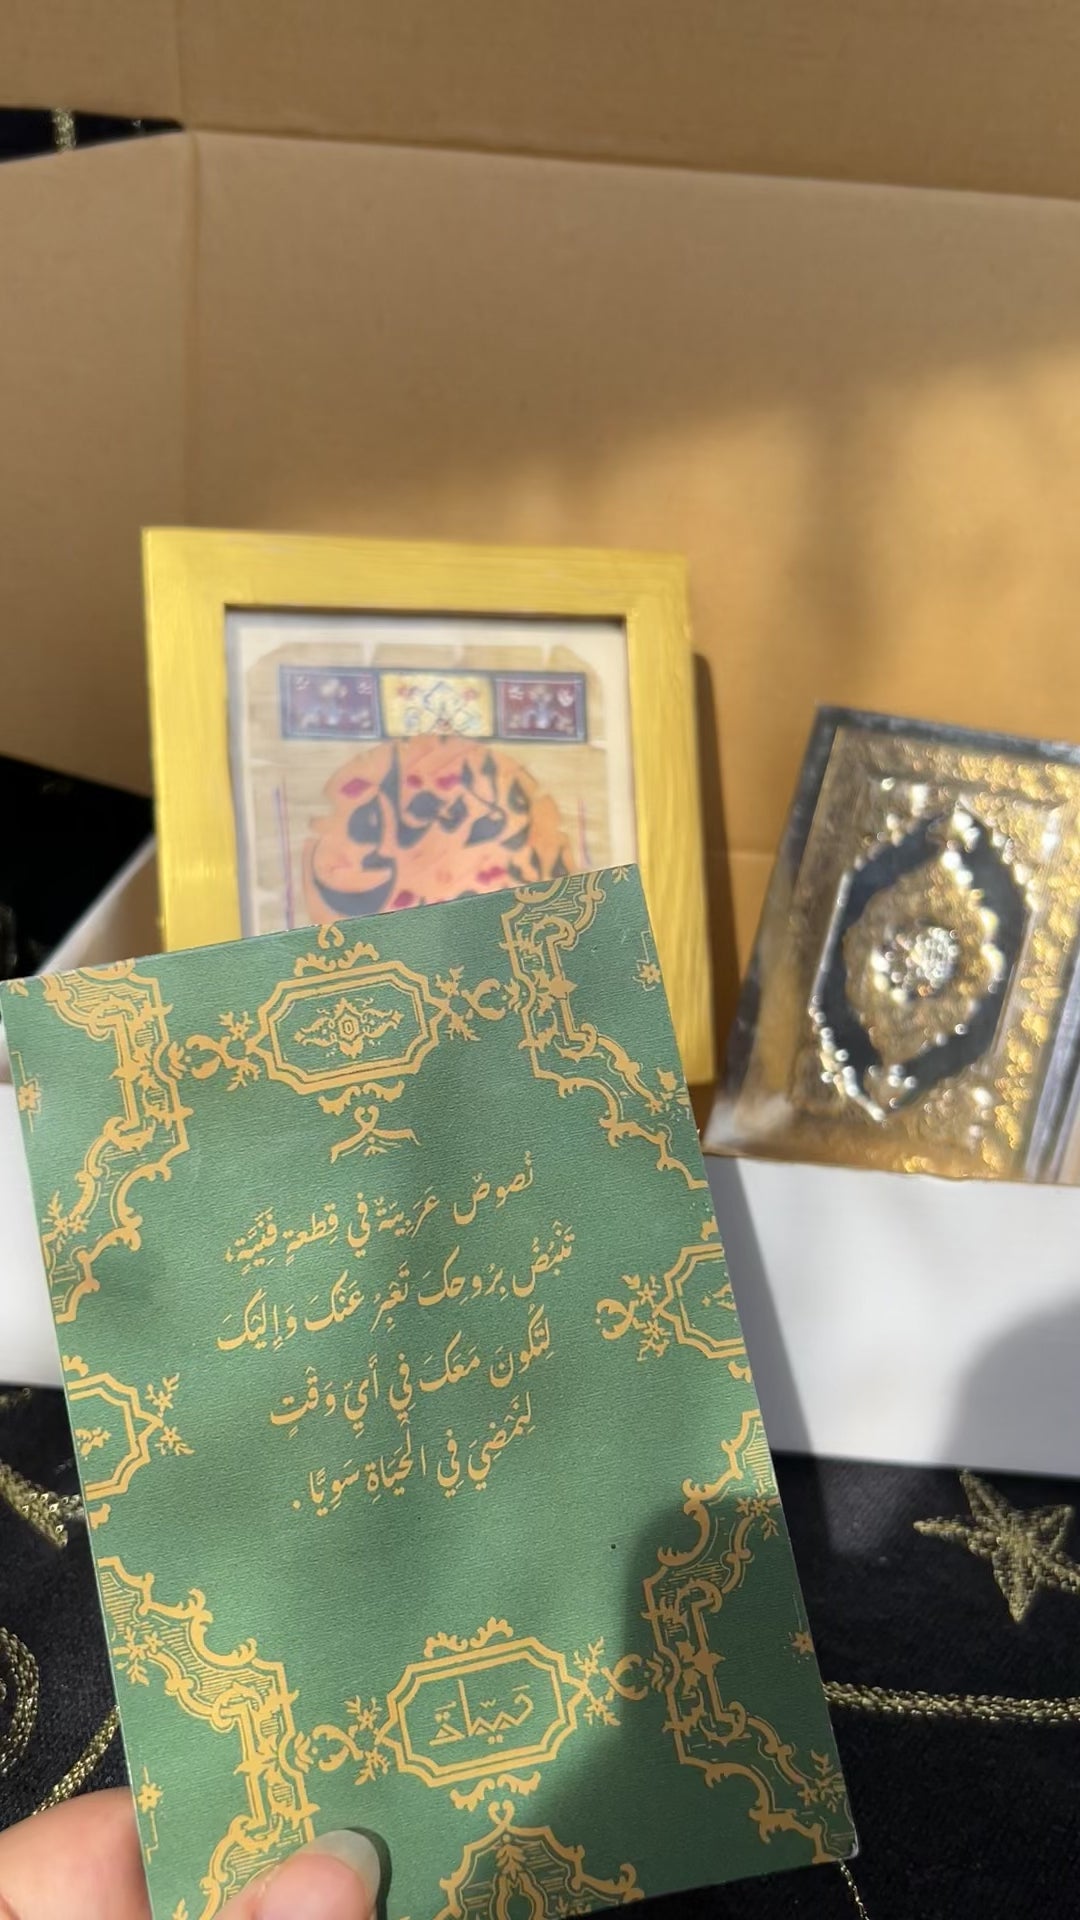 ولا تعلقي
نُصوصٌ عَرَبِيَّةٌ فِي قِطعةٍ فَنِّيَّةٍ،
تَنْبُضُ بِرُوحِكَ تَعْبُرُ عَنْكَ وَإِلَيْكَ
لِتَكُونَ مَعَكَ فِي أَيِّ وَقْتٍ
لِنَمْضِيَ فِي الْحَيَاةِ سَوِيًّا.